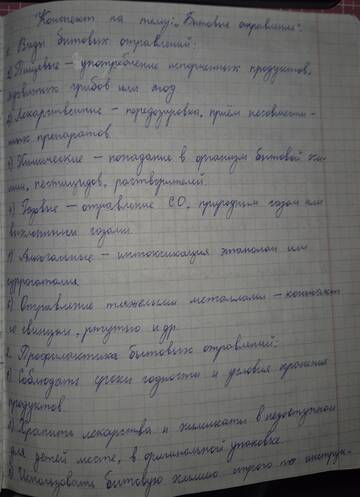 Конспект на тему: "Бытовые отравления".
Виды бытовых отравлений:
1) Пищевые – употребление испорченных продуктов,
ядовитых грибов или ягод
2) Лекарственные – передозировка, приём несовмести-
мых препаратов
3) Химические – попадание в организм бытовой хи-
мии, пестицидов, растворителей.
4) Газовые – отравление СО, природным газом или
выхлопными газами.
5) Алкогольные – интоксикация этанолом или
суррогатами.
6) Отравление тяжелыми металлами – контакт
со свинцом, ртутью и др.
2. Профилактика бытовых отравлений:
1) Соблюдать сроки годности и условия хранения
продуктов.
2) Хранить лекарства и химикаты в недоступном
для детей месте, в оригинальной упаковке.
3) Использовать бытовую химию строго по инструк-